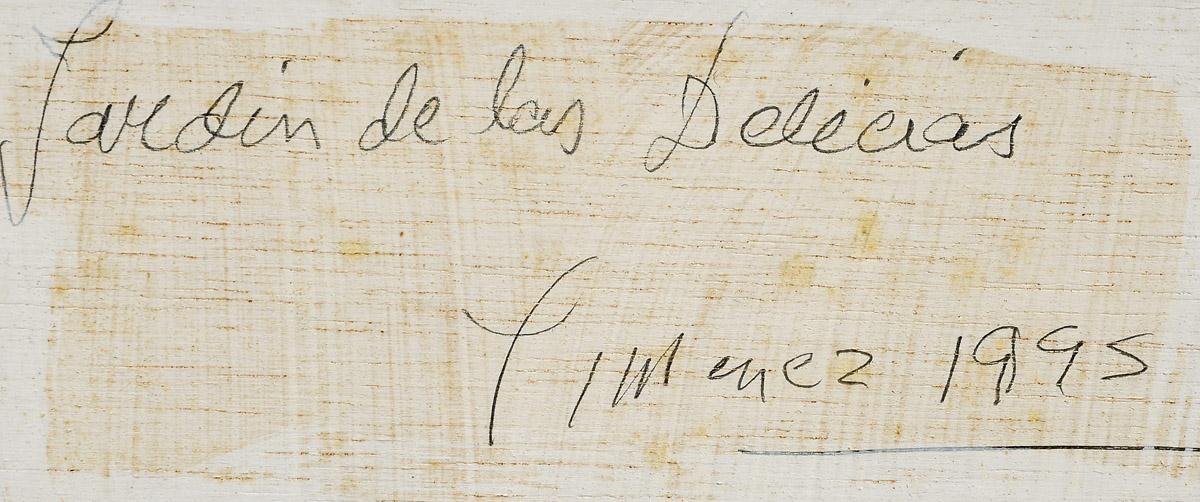 Jardin de las Delicias
Jimenez 1995